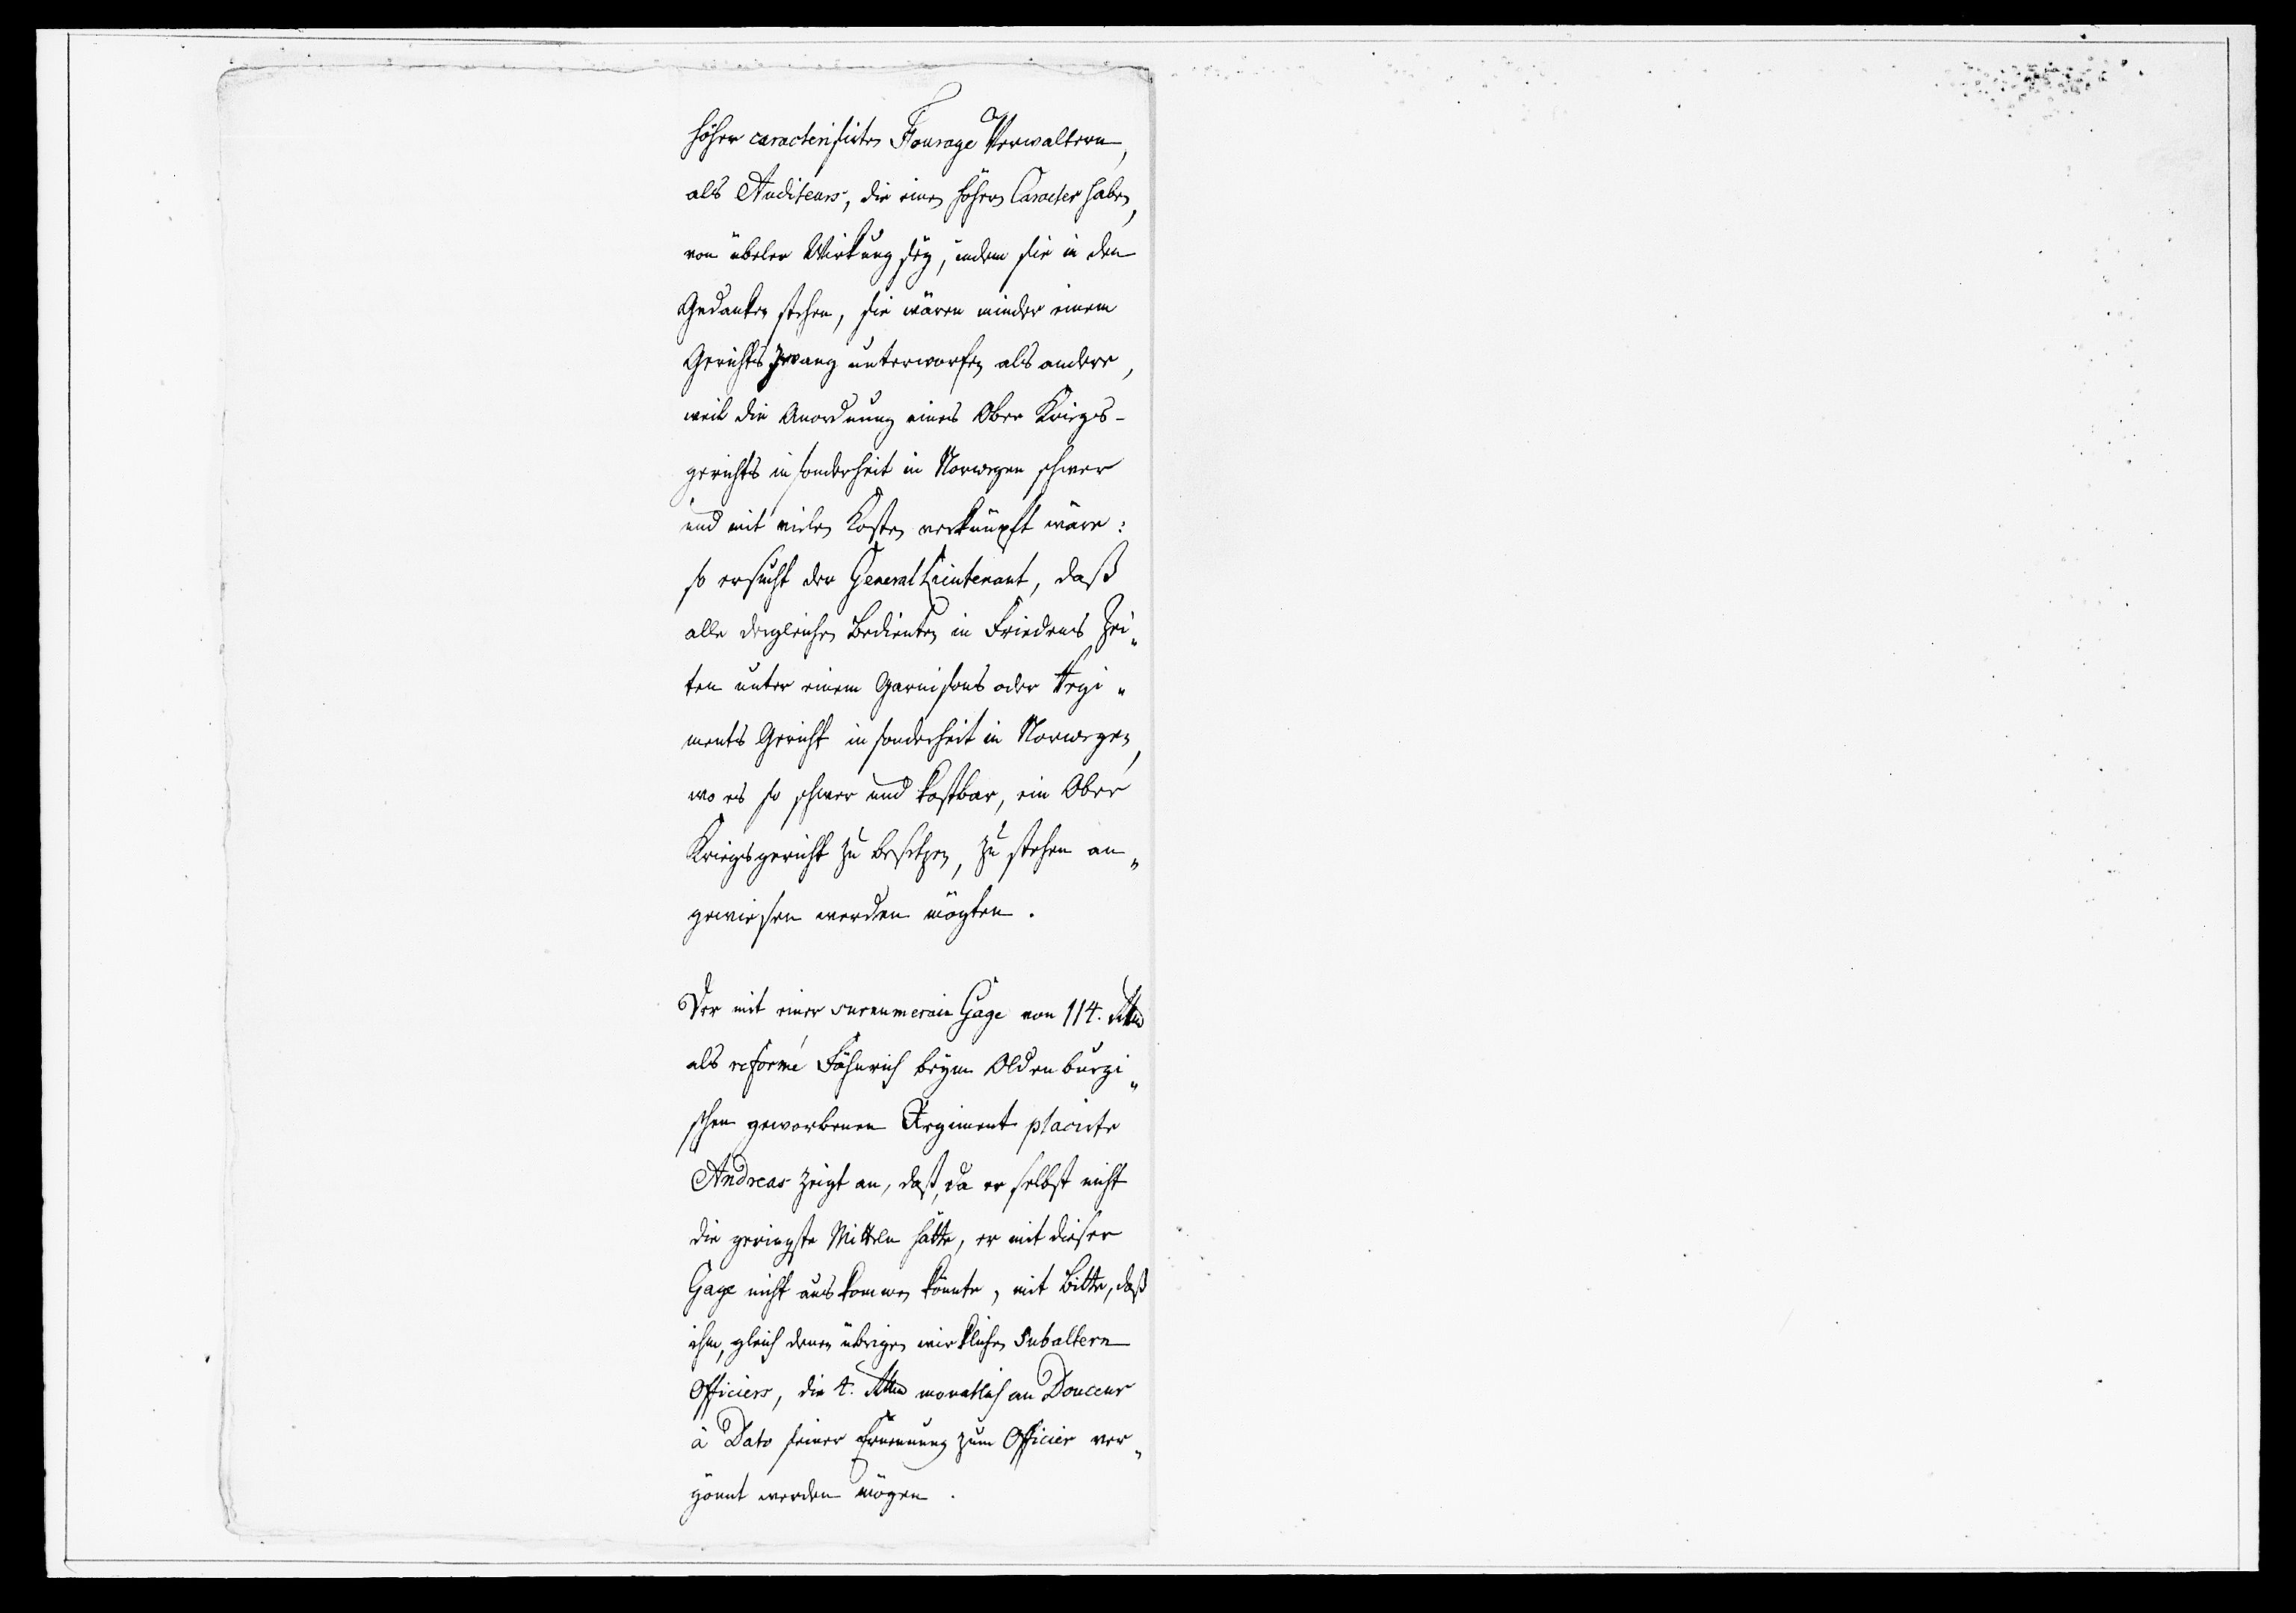 höher caracterisirten Fourage Verwaltern,
als Auditeurs, die einen höhern Caracter haben,
von übeler Wirkung sey, indem sie in den
Gedanken stehen, sie wären minder einem
Gerichts Zwang unterworfen als andere,
weil die Anordnung eines Ober Kriegs-
gerichts insonderheit in Norwegen schwer
und mit vielen Kosten verknüpft wäre:
so ersucht der General Lieutenant, daß
alle dergleichen Bedienten in Friedens Zei„
ten unter einem Garnisons oder Regi„
ments Gericht insonderheit in Norwegen,
wo es so schwer und kostbar, ein Ober
Kriegsgericht zu besetzen, zu stehen an„
gewiesen werden mögten.
Der mit einer surnumerair Gage von 114. Rthlr
als reformé Fähnrich beym Oldenburgi„
schen geworbenen Regiment placirte
Andreas zeigt an, daß, da er selbst nicht
die geringste Mitteln hätte, er mit dieser
Gage nicht auskommen könnte, mit Bitte, daß
ihm, gleich denen übrigen wirklichen Subaltern
Officiers, die 4. Rthlr monatlich an Douceur
à Dato seiner Ernennung zum Officier ver„
gönnt werden mögen.